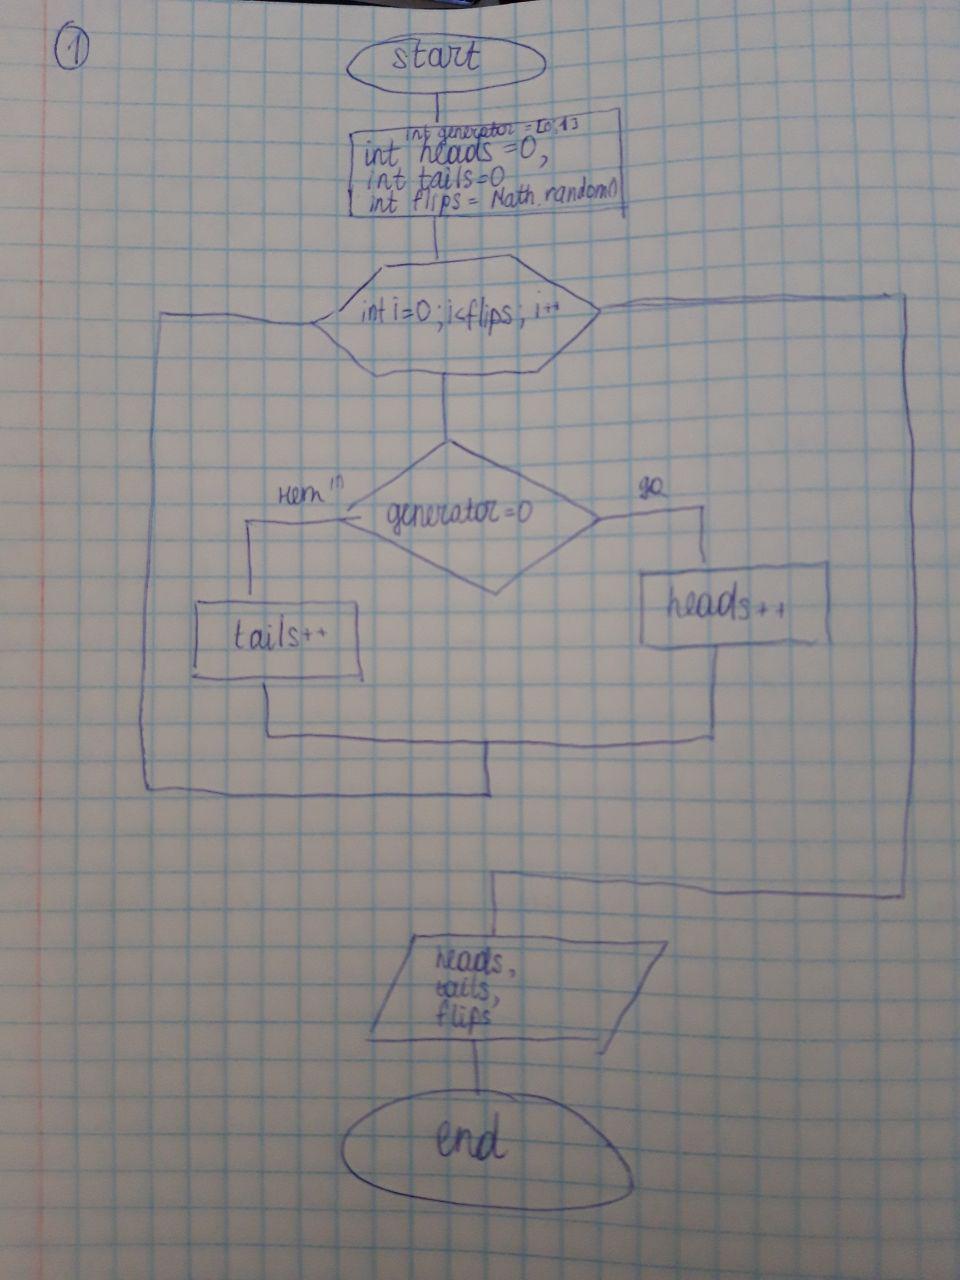 1
start
int generator = [0,1]
int heads = 0,
int tails=0
int flips = Math.random()
int i=0; i<flips; i++
нет
да
generator=0
heads++
tails++
heads,
tails,
flips
end